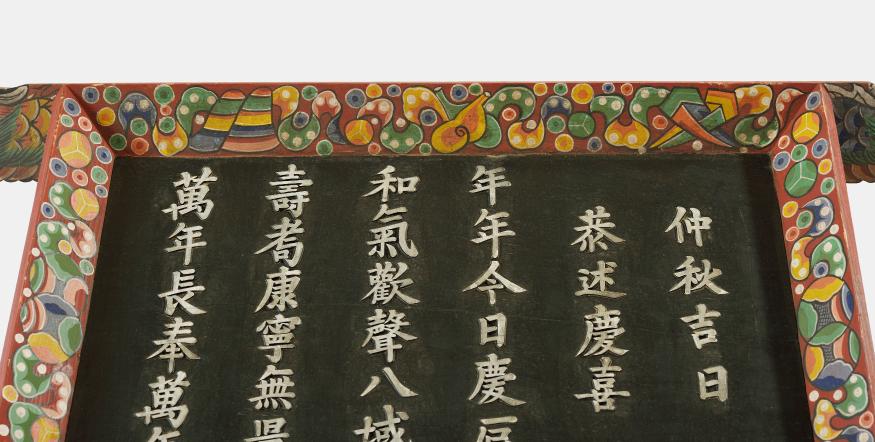 仲秋吉日
恭述慶喜
年年今日慶
和氣歡聲八域
壽耇康寧無
萬年長奉萬